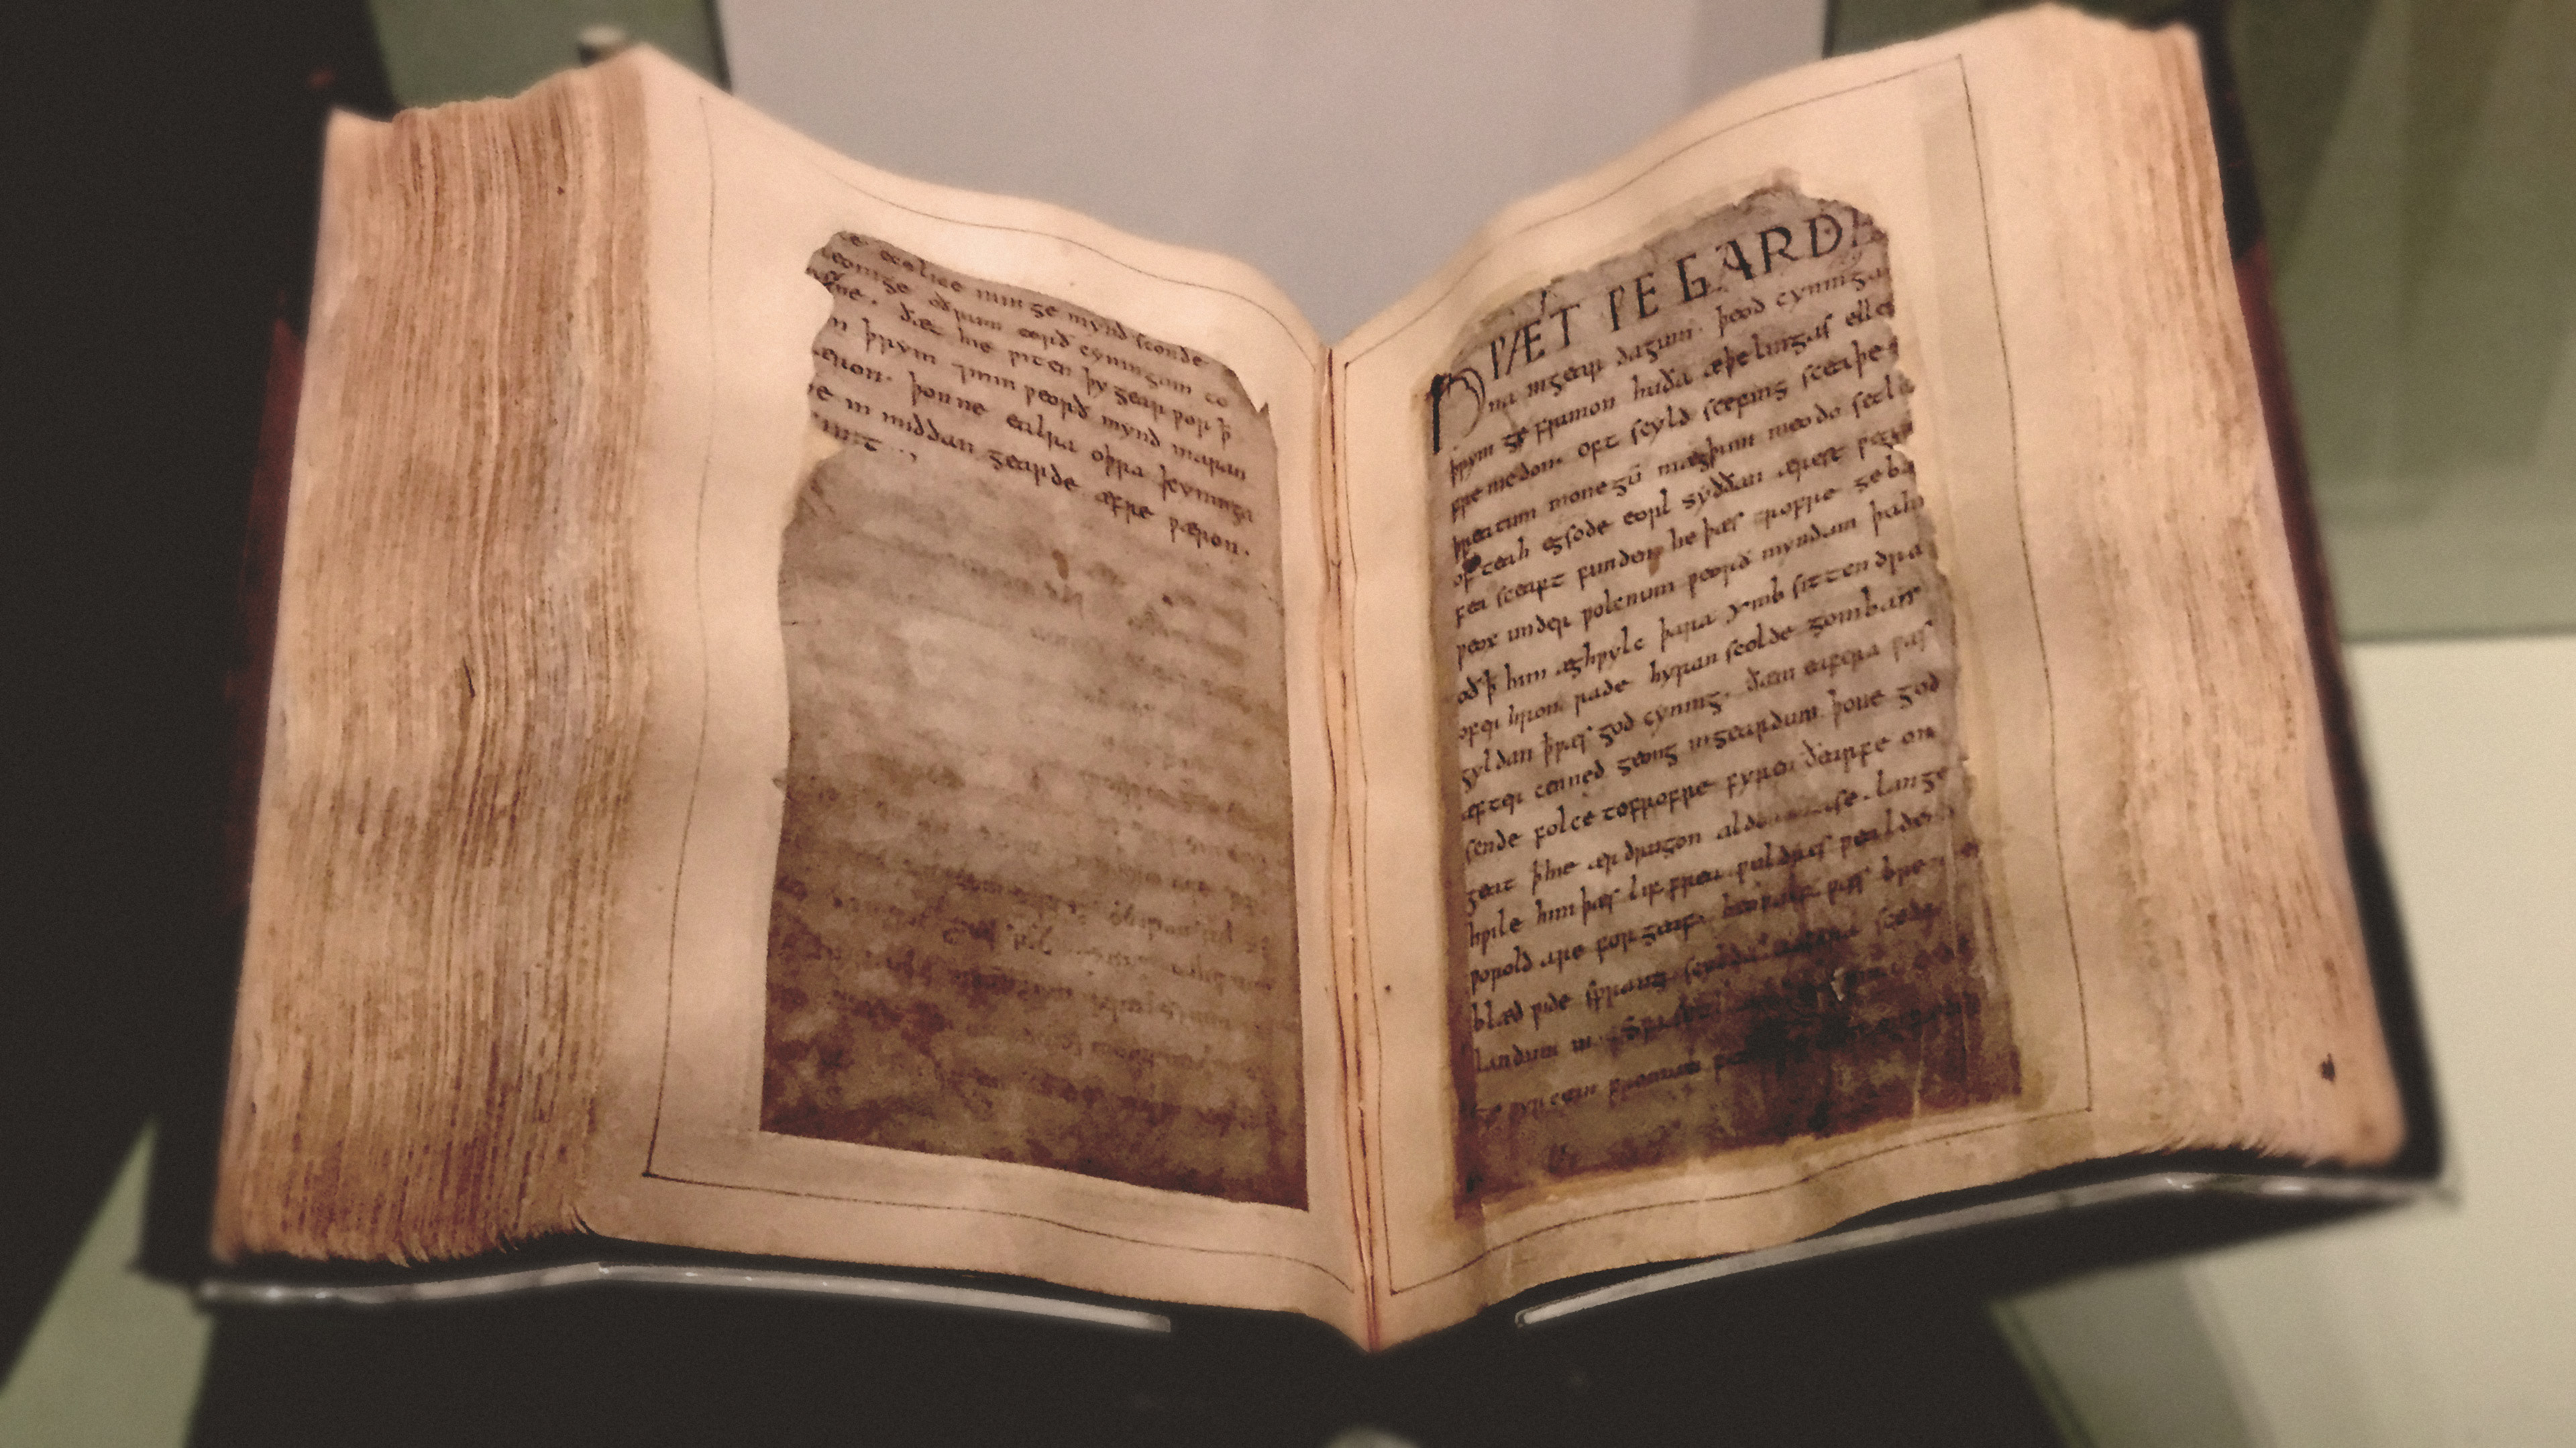 ecelice min ge mynd stonde
leonige oðrum eorð cyningum to
sne. ðæt hie ƿiten þy gearƿor ꝥ
n þrym ⁊min ƿeorð mynd maran
æron. þonne ealra oþra kyninga
e in middan gearde æfre ƿæron.
init
HǷÆT ǷE GARDE
na ingear dagum. þeod cyninga
þrym ge frunon huða æþelingas elle
fremedon. oft scyld scefing sceaþe
þreatum monegū mægþum meodo setla
of teah egsode eorl syððan ærest ƿear
fea sceaft funden he þæs frofre geba
ƿeox under ƿolcnum ƿeorð myndum þah
oð ꝥ him æghƿylc þara ymb sittendra
ofer hron rade hyran scolde gomban
gyldan ꝥ ƿæs god cyning. ðæm eafera ƿæs
æfter cenned geong ingeardum þone god
sende folce tofrofre fyren ðearfe on
geat ꝥ hie ær drugon lange
hƿile him þæs lif frea ƿuldres ƿealde
ƿorold are for geaf. beoƿulf ƿæs bre
blæd ƿide sprang scyldes eafera scede
landum in. Sƿa sceal
ge ƿyrcean fromum